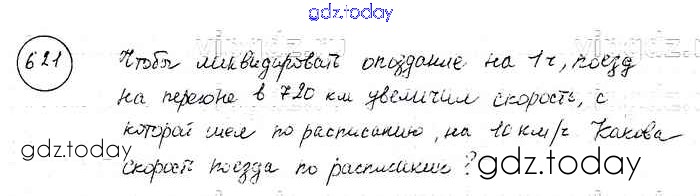 gdz.today
621 Чтобы ликвидировать опоздание на 1 ч, поезд
на перегоне в 720 км увеличил скорость, с
которой шел по расписанию, на 10 км/ч Какова
gdz.today
скорость поезда по расписанию?
gdz.today